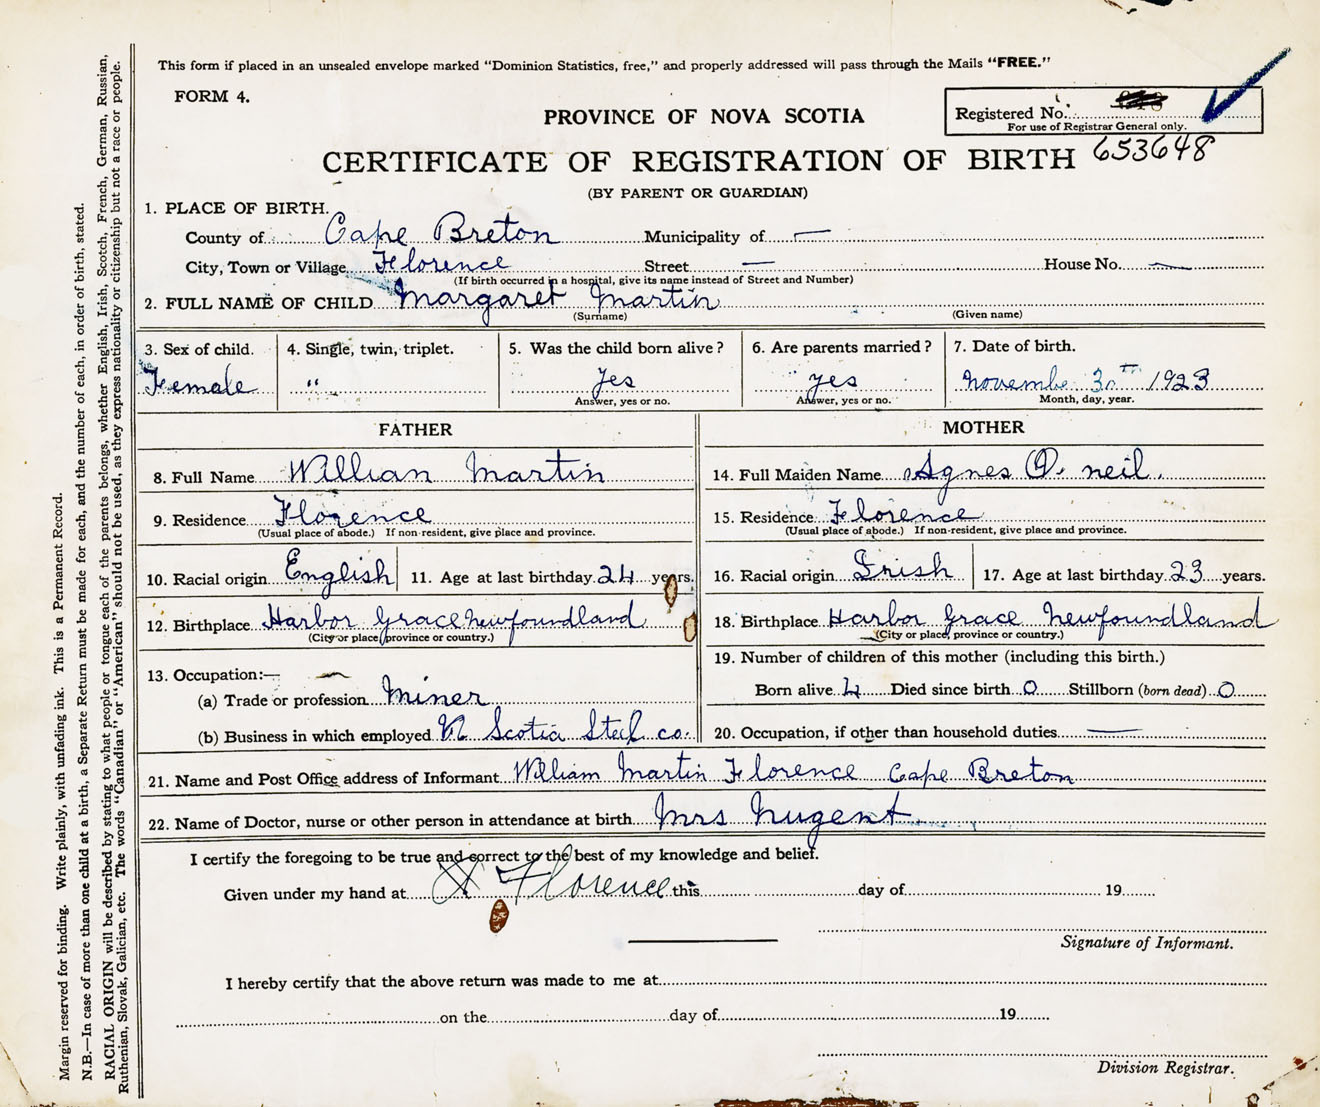 This form if placed in an unsealed envelope marked "Dominion Statistics, free," and properly addressed will pass through the Mails "FREE."
FORM 4.
PROVINCE OF NOVA SCOTIA
Registered No.
For use of Registrar General only.
CERTIFICATE OF REGISTRATION OF BIRTH 653648
(BY PARENT OR GUARDIAN)
1. PLACE OF BIRTH.
County of Cape Breton Municipality of —
City, Town or Village Florence Street — House No. —
(If birth occurred in a hospital, give its name instead of Street and Number)
2. FULL NAME OF CHILD Margaret Martin
(Surname) (Given name)
3. Sex of child. 4. Single, twin, triplet. 5. Was the child born alive? 6. Are parents married? 7. Date of birth.
Female " Yes yes November 30th 1923
Answer, yes or no. Answer, yes or no. Month, day, year.
FATHER
8. Full Name Willian Martin
9. Residence Florence
(Usual place of abode.) If non-resident, give place and province.
10. Racial origin English 11. Age at last birthday 24 years.
12. Birthplace Harbor Grace Newfoundland
(City or place, province or country.)
13. Occupation:—
(a) Trade or profession Miner
(b) Business in which employed N Scotia Steel co.
MOTHER
14. Full Maiden Name Agnes O. neil.
15. Residence Florence
(Usual place of abode.) If non-resident, give place and province.
16. Racial origin Irish 17. Age at last birthday 23 years.
18. Birthplace Harbor Grace Newfoundland
(City or place, province or country.)
19. Number of children of this mother (including this birth.)
Born alive 4 Died since birth 0 Stillborn (born dead) 0
20. Occupation, if other than household duties —
21. Name and Post Office address of Informant William Martin Florence Cape Breton
22. Name of Doctor, nurse or other person in attendance at birth Mrs Nugent
I certify the foregoing to be true and correct to the best of my knowledge and belief.
Given under my hand at X Florence this day of 19
Signature of Informant.
I hereby certify that the above return was made to me at
on the day of 19
Division Registrar.
Margin reserved for binding. Write plainly, with unfading ink. This is a Permanent Record.
N.B.—In case of more than one child at a birth, a Separate Return must be made for each, and the number of each, in order of birth, stated.
RACIAL ORIGIN will be described by stating to what people or tongue each of the parents belongs, whether English, Irish, Scotch, French, German, Russian,
Ruthenian, Slovak, Galician, etc. The words "Canadian" or "American" should not be used, as they express nationality or citizenship but not a race or people.